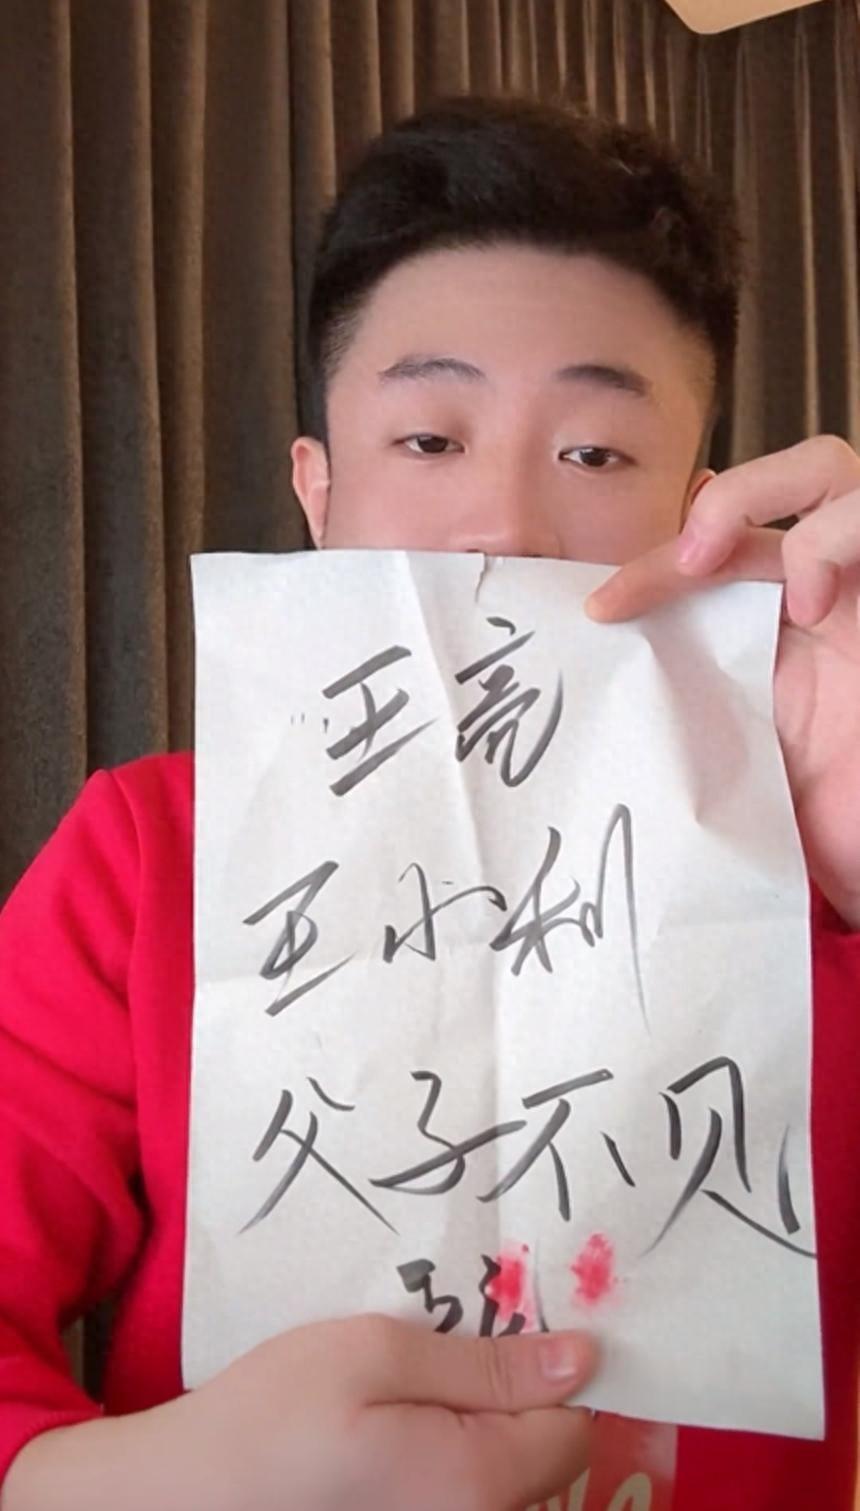 王亮
王小利
父子不见